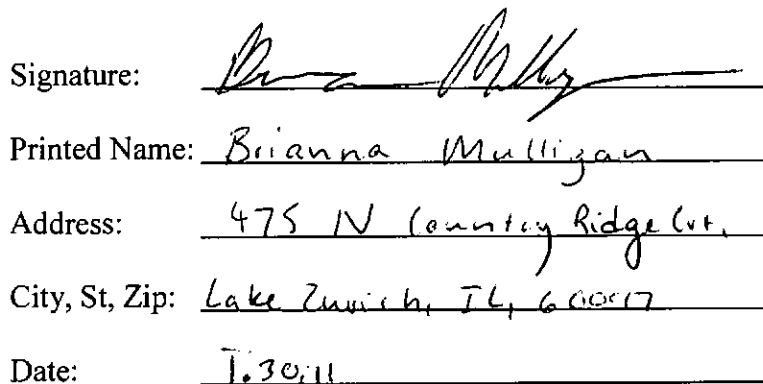 Signature:
Printed Name: Brianna Mulligan
Address: 475 N Country Ridge Crt.
City, St, Zip: Lake Zurich, IL,
Date: